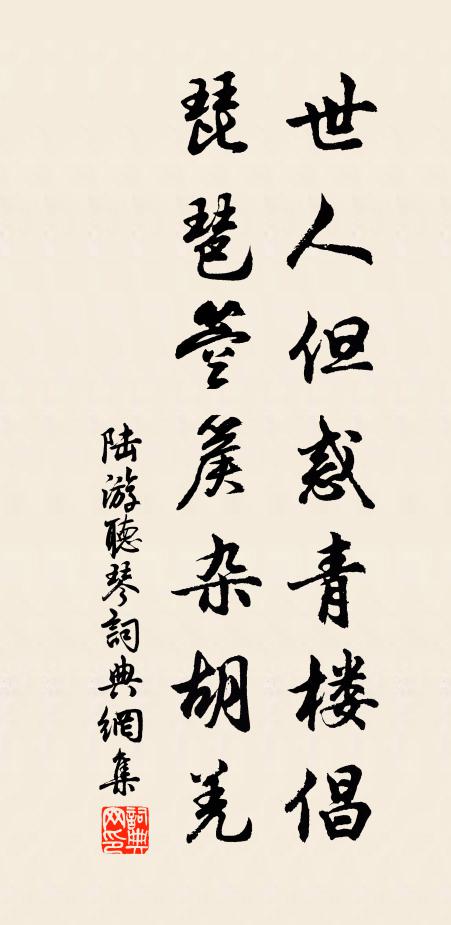 世人但惑青楼倡
琵琶箜篌杂胡羌
陆游聽琴詞典網集
詞典网印